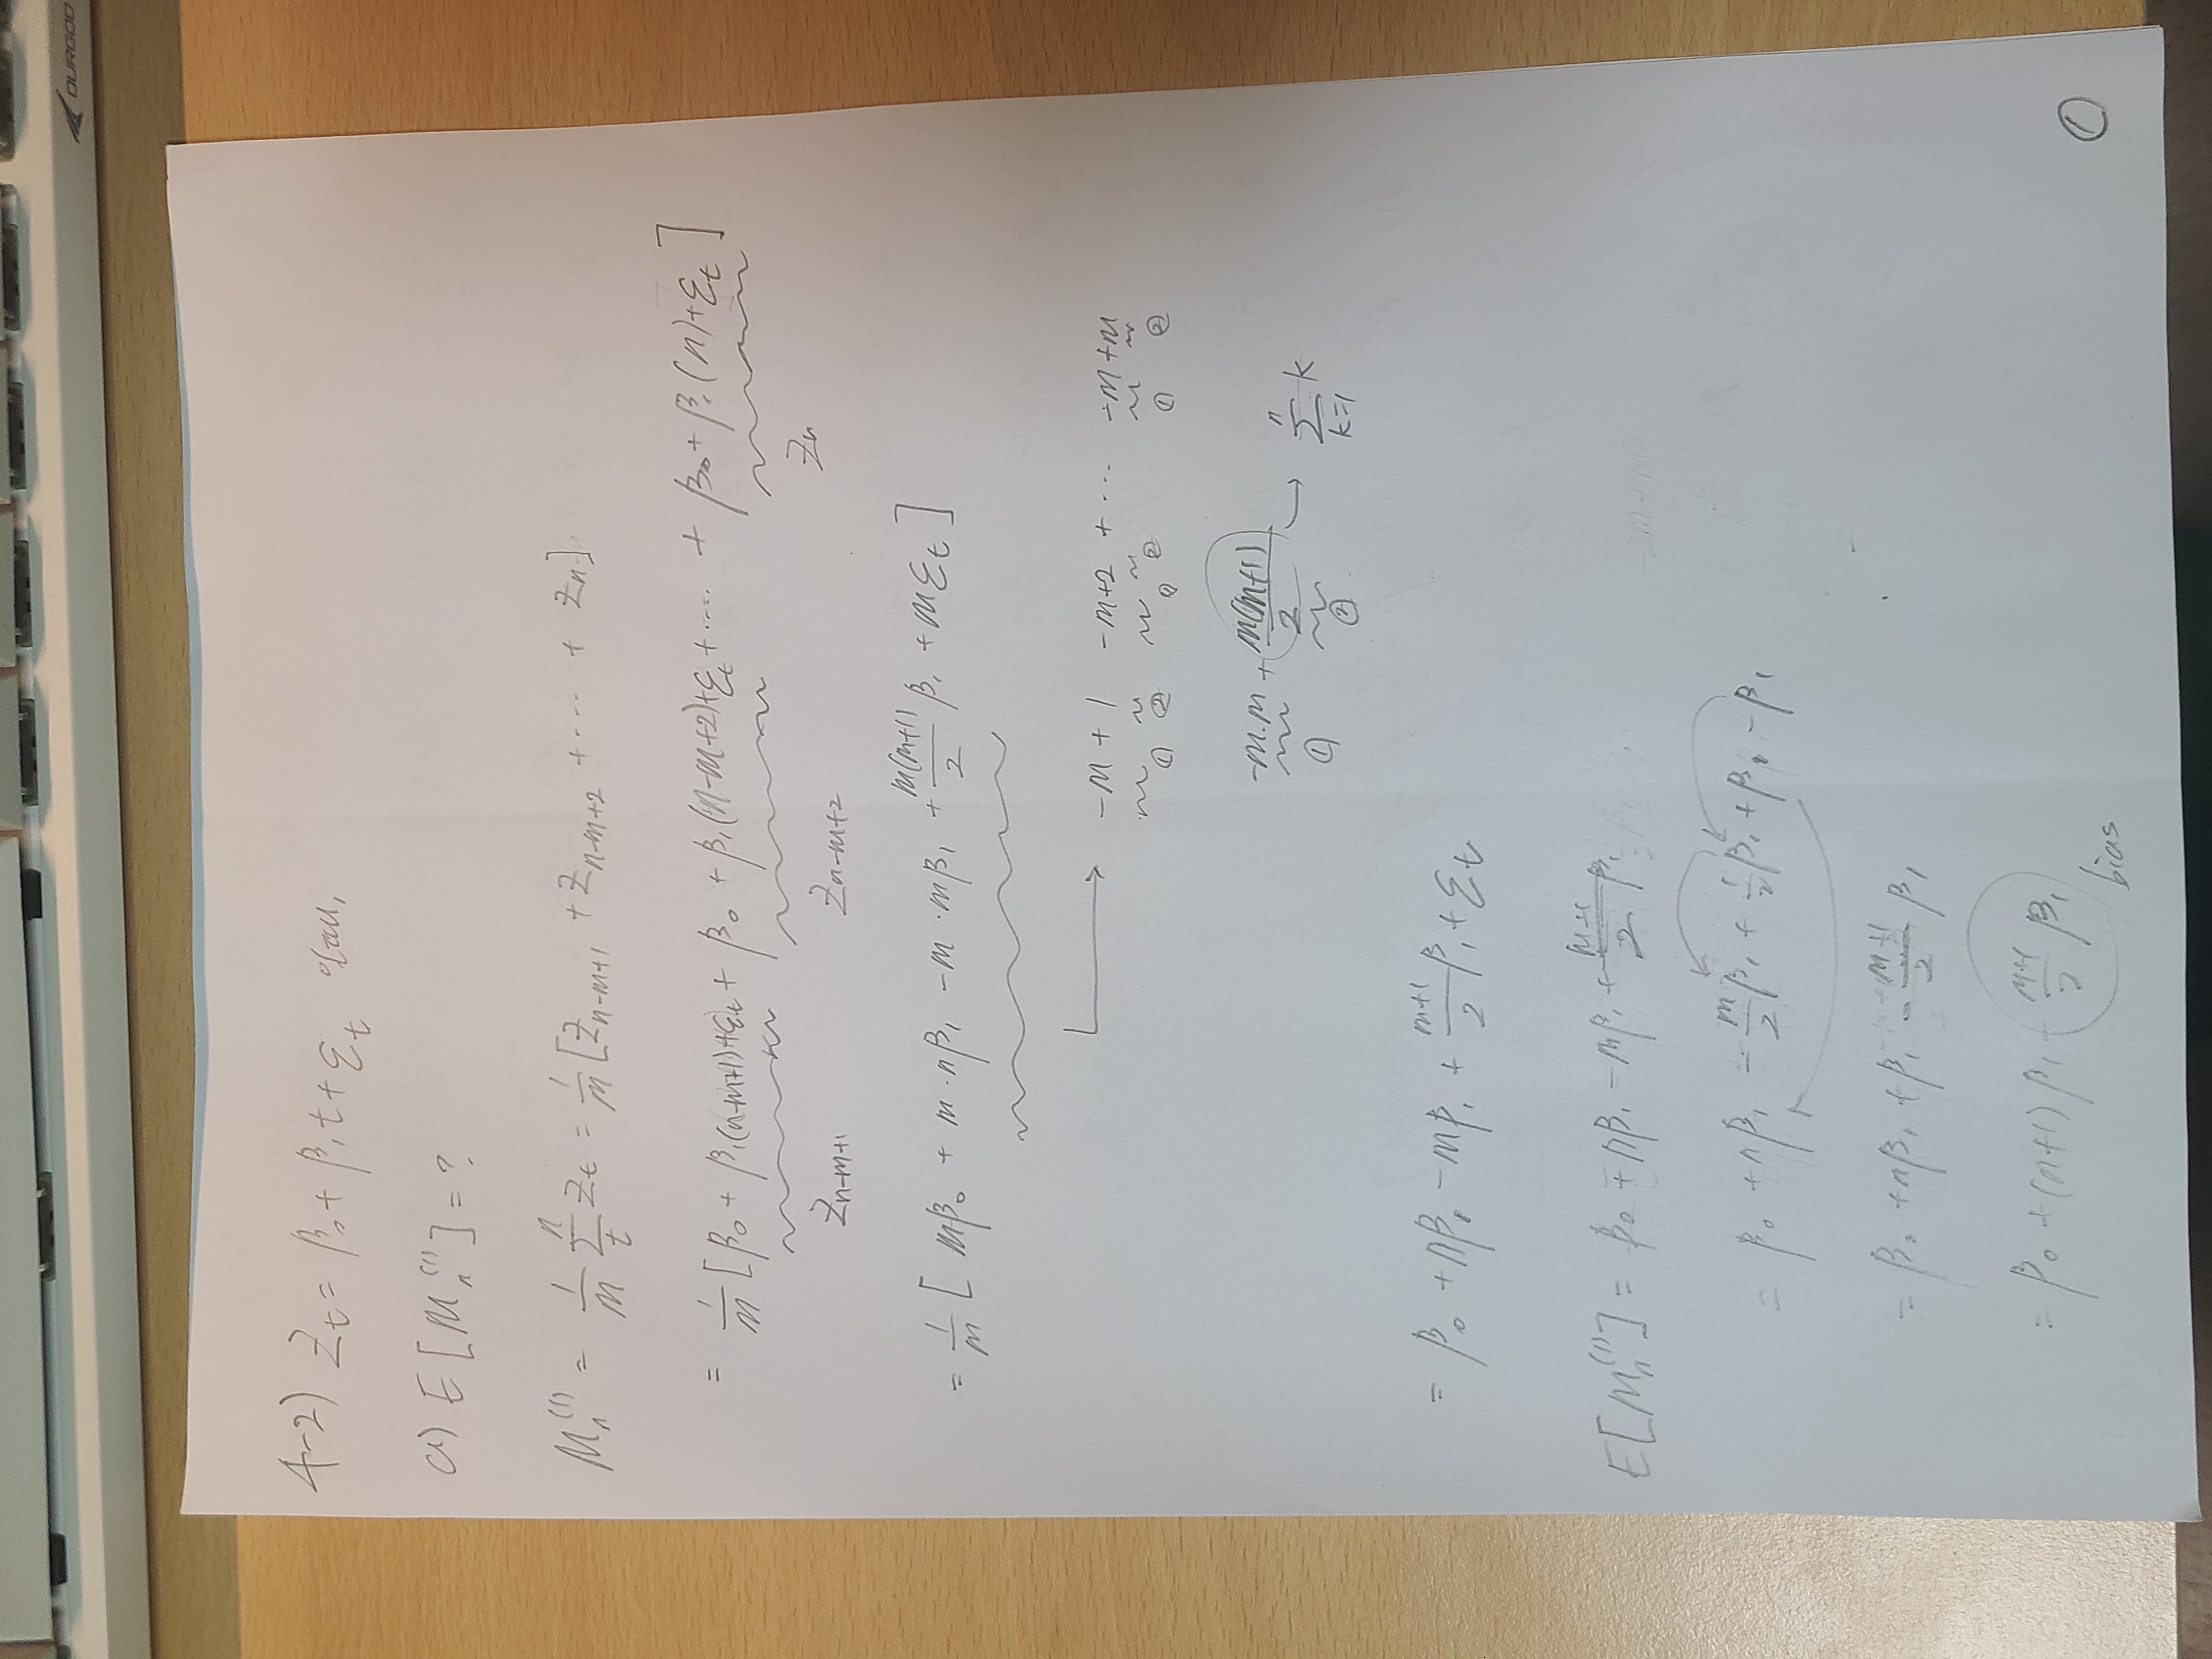 DURGOD
4-2) Z_t = β_0 + β_1 t + ε_t 일때,
a) E[M_n^(1)] = ?
M_n^(1) = 1/m Σ_t^n Z_t = 1/m [Z_{n-m+1} + Z_{n-m+2} + ···· + Z_n]
= 1/m [β_0 + β_1(n-m+1)+ε_t + β_0 + β_1(n-m+2)+ε_t + ···· + β_0 + β_1(n)+ε_t]
Z_{n-m+1} Z_{n-m+2} Z_n
= 1/m [mβ_0 + m·nβ_1 - m·mβ_1 + m(m+1)/2 β_1 + mε_t]
→ -m + 1 -m+2 + ··· -m+m
① ② ① ② ① ②
-m·m + m(m+1)/2 → Σ_{k=1}^n k
① ②
= β_0 + nβ_1 - mβ_1 + m+1/2 β_1 + ε_t
E[M_n^(1)] = β_0 + nβ_1 - mβ_1 + m+1/2 β_1
= β_0 + nβ_1 - m/2 β_1 + 1/2 β_1 + β_1 - β_1
= β_0 + nβ_1 + β_1 - m+1/2 β_1
= β_0 + (n+1)β_1 - m+1/2 β_1
bias
①